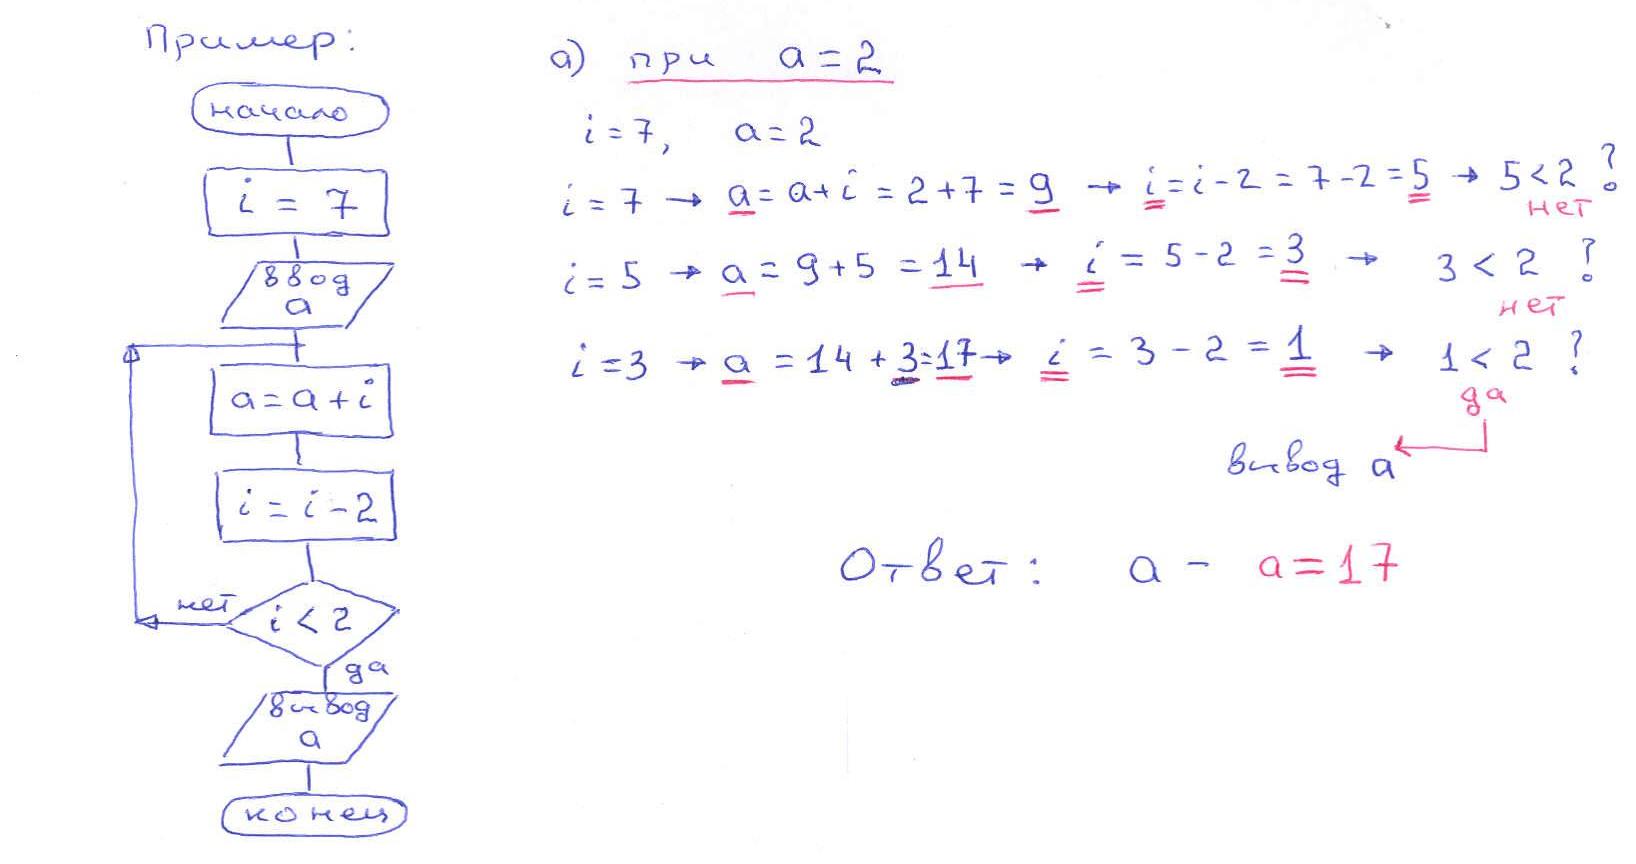 Пример:
начало
i = 7
ввод
a
a = a + i
i = i - 2
нет
i < 2
да
вывод
a
конец
а) при a = 2
i = 7, a = 2
i = 7 → a = a + i = 2 + 7 = 9 → i = i - 2 = 7 - 2 = 5 → 5 < 2 ?
нет
i = 5 → a = 9 + 5 = 14 → i = 5 - 2 = 3 → 3 < 2 ?
нет
i = 3 → a = 14 + 3 = 17 → i = 3 - 2 = 1 → 1 < 2 ?
да
вывод a
Ответ: а - a = 17